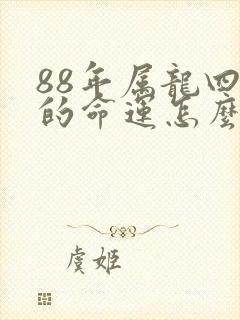 88年属龍四
的命運怎麽
虞姬